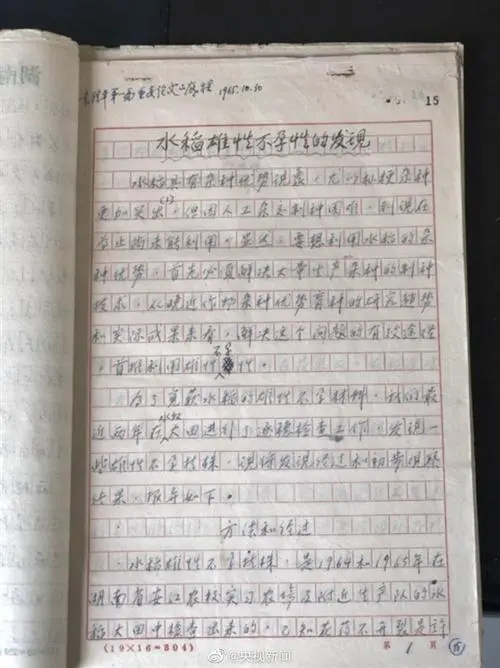 湖南
袁隆平第一篇重要论文之底稿 1965.10.30
15
水稻雄性不孕性的发现
水稻具有杂种优势现象,尤以籼粳杂种
更加突出(1),但因人工杂交制种困难,到现在
为止尚未能利用。显然,要想利用水稻的杂
种优势,首先必须解决大量生产杂种的制种
技术。从晚近作物杂种优势育种的研究趋势
和实际成果来看,解决这个问题的有效途径
,首推利用雄性不孕性。
为了获得水稻的雄性不孕材料,我们最
近两年在水稻大田进行了逐穗检查工作,发现一
些雄性不孕植株,现将发现经过和初步观察
结果,报导如下。
方法和经过
水稻雄性不孕植株,是1964和1965年在
湖南省安江农校实习农场及附近生产队的水
稻大田中检查出来的。已知花药不开裂是
(19×16=304)
第 1 页
@央视新闻